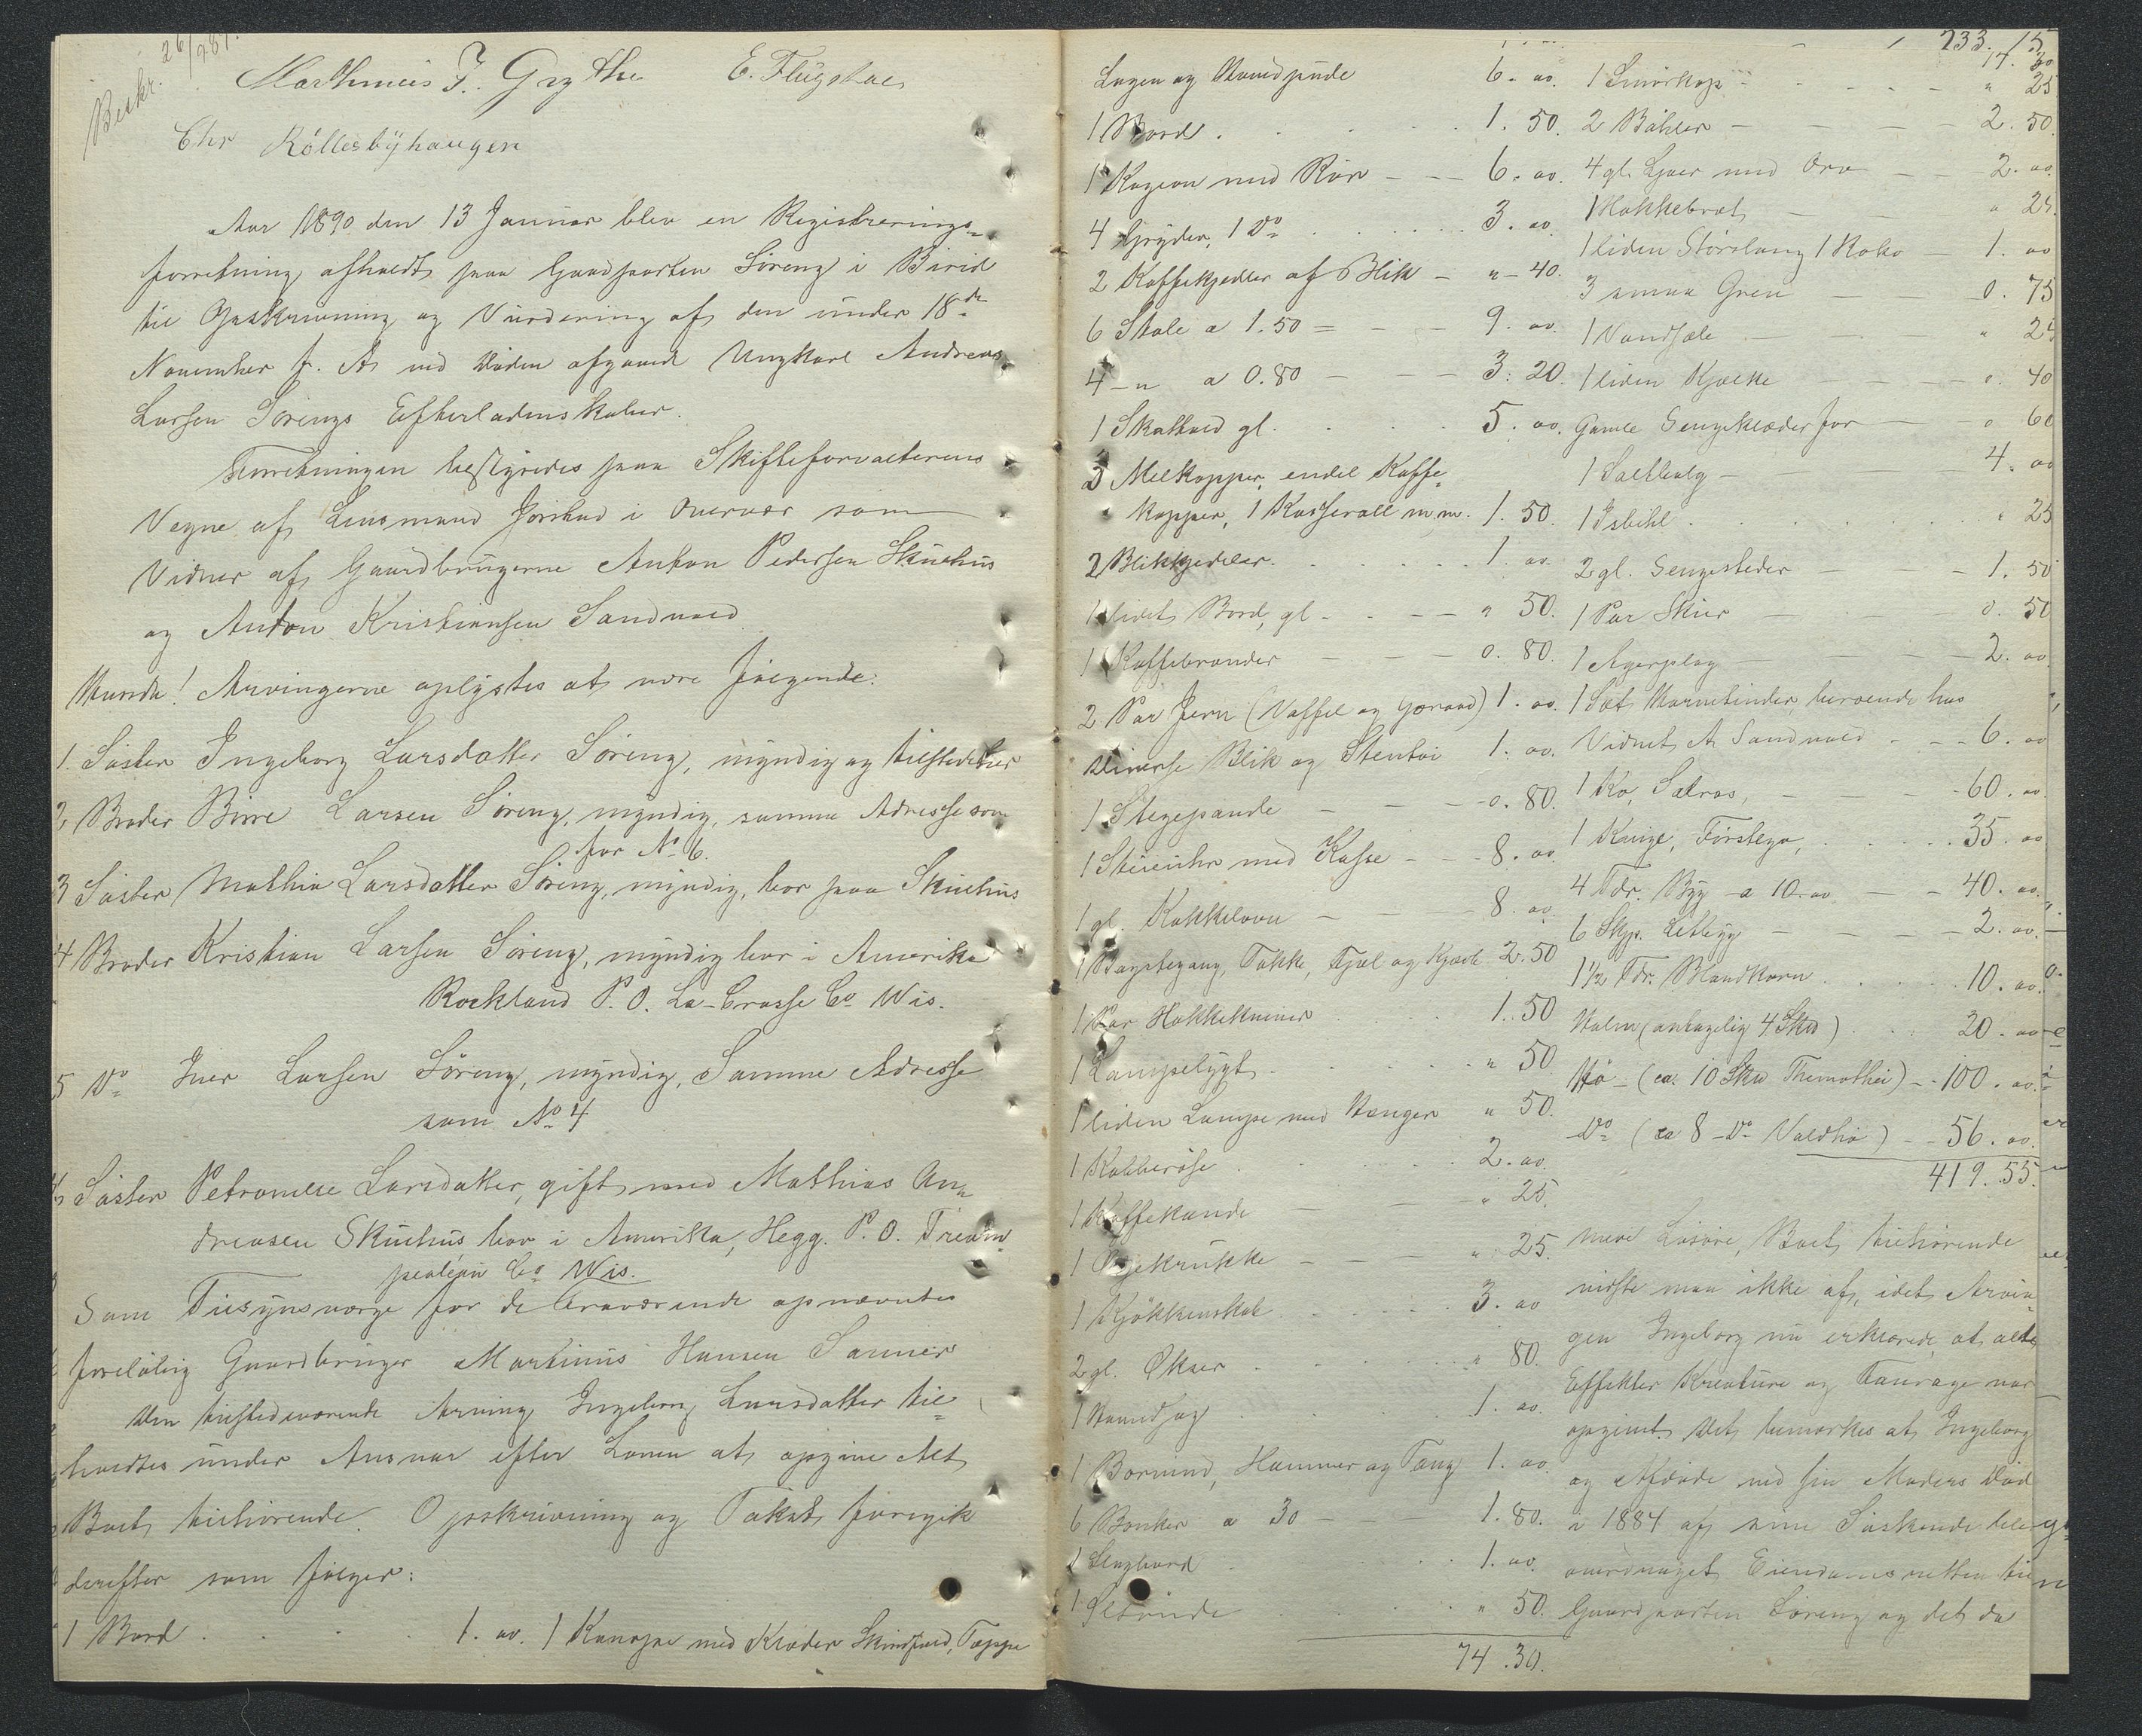 Beskr. 26/9 81.
Marthinius J. Grythe E. Flugstad
Chr Röllesbyhaugen
Aar 1890 den 13 Januar blev en Registrerings-
forretning afholdt paa Gaardparten Söreng i Birid
til Opskrivning og Vurdering af den under 18de
November f. A. ved Döden afgaaede Ungkarl Andreas
Larsen Sörengs Efterladenskaber.
Forretningen bestyredes paa Skifteforvalterens
Vegne af Lensmand Jörstad i Overvær som
Vidner af Gaardbrugerne Anton Pedersen Skuehus
og Anton Kristiansen Sandvold
Mærk! Arvingerne oplystes at være følgende:
1. Söster Ingeborg Larsdatter Söreng, myndig og tilstede her
2. Broder Birre Larsen Söreng, myndig, samme Adresse som
for No 6.
3 Söster Mathia Larsdatter Söreng, myndig, bor paa Skuehus
4 Broder Kristian Larsen Söreng, myndig bor i Amerika
Rockland P. O. La-Crosse Co. Wis.
5 Do Iver Larsen Söreng, myndig, Samme Adresse
som No 4
6 Söster Petronelle Larsdatter, gift med Mathias An-
dreasen Skuehus, bor i Amerika, Hegg. P. O. Tream-
pealeau Co Wis.
Som Tilsynsværge for de fraværende opnævntes
foreløbig Gaardbruger Martinus Hansen Sanner
Den tilstedeværende Arving Ingeborg Larsdatter til-
holdtes under Ansvar efter Loven at opgive Alt
Boet tilhörende. Opskrivning og Takst foregik
derefter som følger:
1 Bord 1. 00. 1 Kanape med Klæder Skindfeld, Tæppe
Lagen og Hovedpude 6. 00.
1 Bord 1. 50.
1 Kogeovn med Rör 6. 00.
4 Gryder, 1 Do 3. 00.
2 Kaffekjedler af Blik " 40.
6 Stole a 1.50 = 9. 00.
4 - " a 0.80 3. 20.
1 Skathold gl. 5. 00.
3 Melkopper, endel Kaffe-
kopper, 1 Kasserolle m.m. 1. 50.
2 Blikkjedeler 1. 00.
1 lidet Bord, gl " 50.
1 Kaffebrænder 0. 80.
2 Par Jern (Vaffel og Goraad) 1. 00.
Diverse Blik og Stentöi 1. 00.
1 Stegepande 0. 80.
1 Stueuhr med Kasse 8. 00.
1 gl. Kakkelovn 8. 00.
1 Bagstegang, Takke, Fjæl og Kjævle 2.50
1 Par Hakkekniver 1. 50
1 Lampelygt " 50
1 liden Lampe med Hænger " 50.
1 Kobberöse 2. 00.
1 Kaffekande " 25.
1 Oljekrukke " 25.
1 Kjökkenskab 3. 00
2 gl. Økser " 80.
1 Haandsag 1. 00.
1 Borvind, Hammer og Tang 1. 00.
6 Bönker a 30 1. 80.
1 Slagbord 1. 00.
" 50.
74. 30.
733. 15
17. 30
1 Smörkop " 25
2 Bähler 2. 50.
4 gl. Ljaer med Orv 2. 00.
1 Hakkebræt " 25.
1 liden Störslang 1 Kobo 1. 00
3 smaa Gren 0. 75
1 Vandsæle " 25
1 liden Kjælke 0. 40
Gamle Sengeklæder for 0 60
1 Saltbalg 4. 00
1 Isbihl " 25
2 gl. Sengesteder 1. 50
1 Par Skier 0. 50
1 Agerplog 2. 00.
1 Sæt Harvetinder, beroende hos
Vidnet A. Sandvold 6. 00
1 Ko, Salros, 60. 00.
1 Kvige, Förstego, 35. 00
4 Tdr. Byg a 10.00 40. 00.
6 Skp. Letbyg 2. 00.
1 1/2 Tdr. Blandkorn 10. 00.
Halm (antagelig 4 Skd) 20. 00
Hö - (ca. 10 Skd Themothei) 100. 00.
Do (ca 8 Do Voldhö) 56. 00.
419. 55.
mere Lösöre, Boet tilhörende
vidste man ikke af, idet Arvin-
gen Ingeborg nu erklærede at alle
Effekter Kreature og Fourage var
opgivet. Det bemærkes at Ingeborg
og Afdöde ved sin Moders Död
i 1884 af sine Söskende blev
overdraget Eiendomsretten til
Gaardparten Söreng og det da